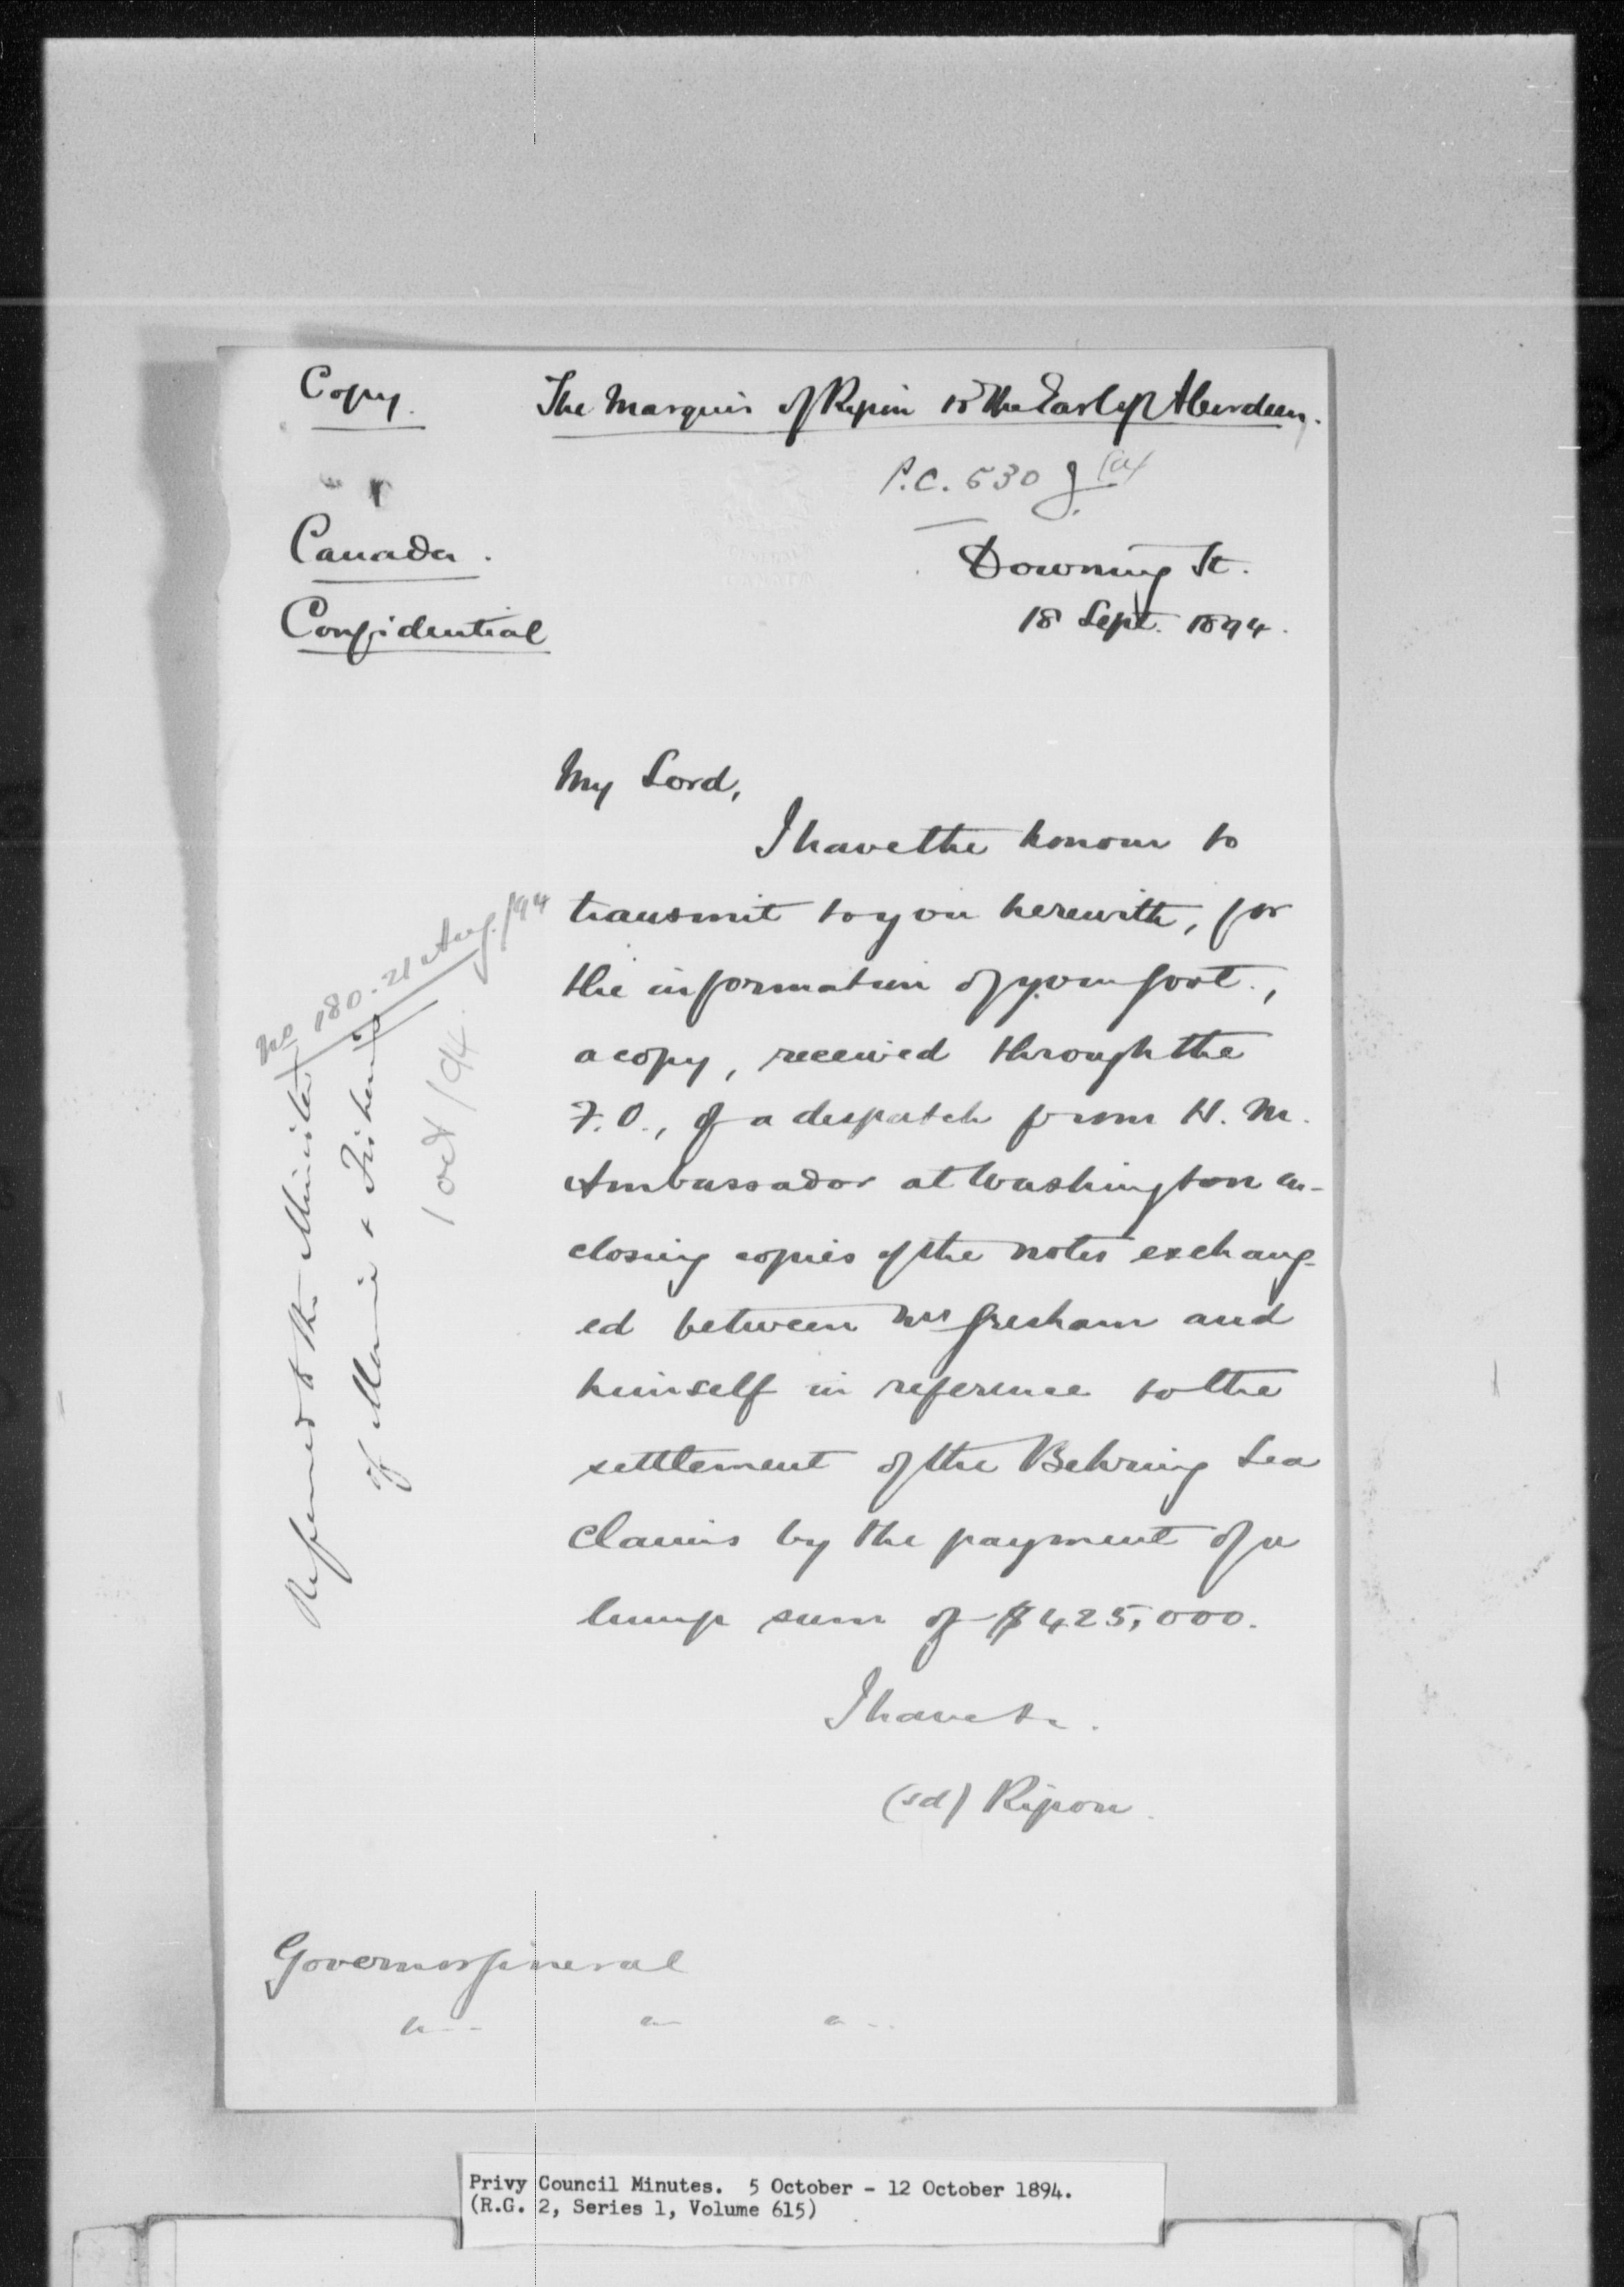 Copy.
The Marquis of Ripon to the Earl of Aberdeen.
P.C. 530 J (a)
Canada.
Downing St.
Confidential
18 Sept. 1894.
My Lord,
I have the honour to
transmit to you herewith, for
the information of your Govt.,
a copy, received through the
F.O., of a despatch from H. M.
Ambassador at Washington en-
closing copies of the notes exchang-
ed between Mr Gresham and
himself in reference to the
settlement of the Behring Sea
Claims by the payment of a
lump sum of $425,000.
I have &c.
(sd) Ripon.
No 180. 21 Aug./94
Referred to the Minister
of Marine & Fisheries
1 Oct /94.
Governor General
Privy Council Minutes. 5 October - 12 October 1894.
(R.G. 2, Series 1, Volume 615)